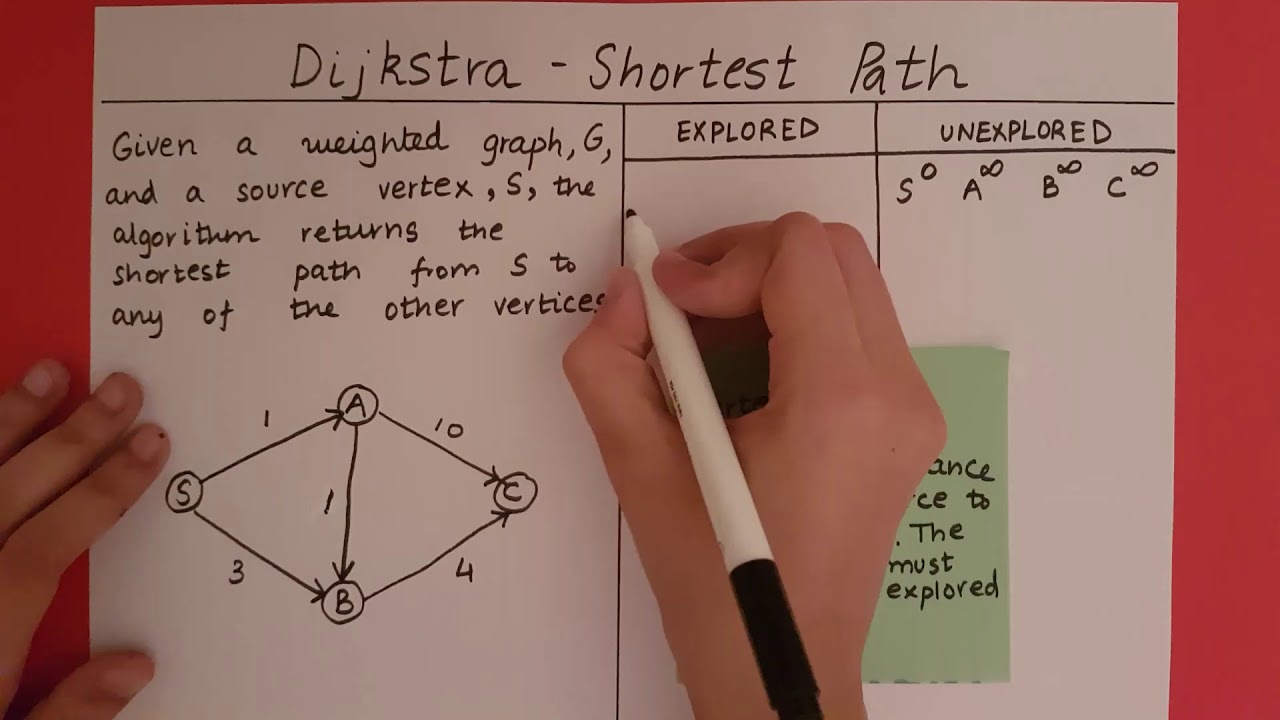 Dijkstra - Shortest Path
Given a weighted graph, G,
and a source vertex, S, the
algorithm returns the
shortest path from S to
any of the other vertices
EXPLORED
UNEXPLORED
S⁰ A^∞ B^∞ C^∞
A
1
10
S
1
C
3
4
B
ce to
. The
must
explored